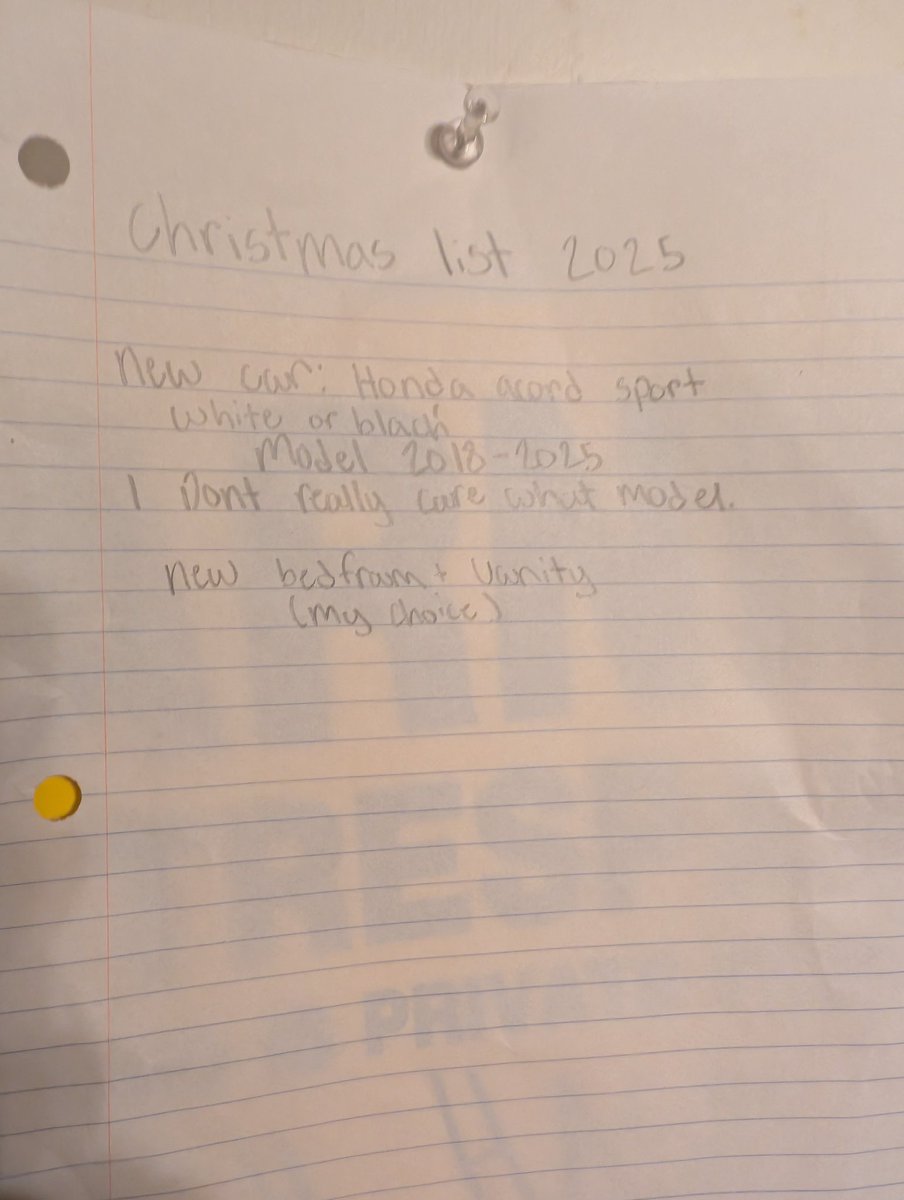 Christmas list 2025
New car: Honda acord sport
White or black
Model 2018-2025
I Dont really care what model.
new bedfram + Vanity
(my choice)